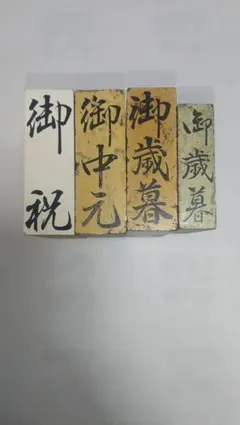 御祝
御中元
御歳暮
御歳暮